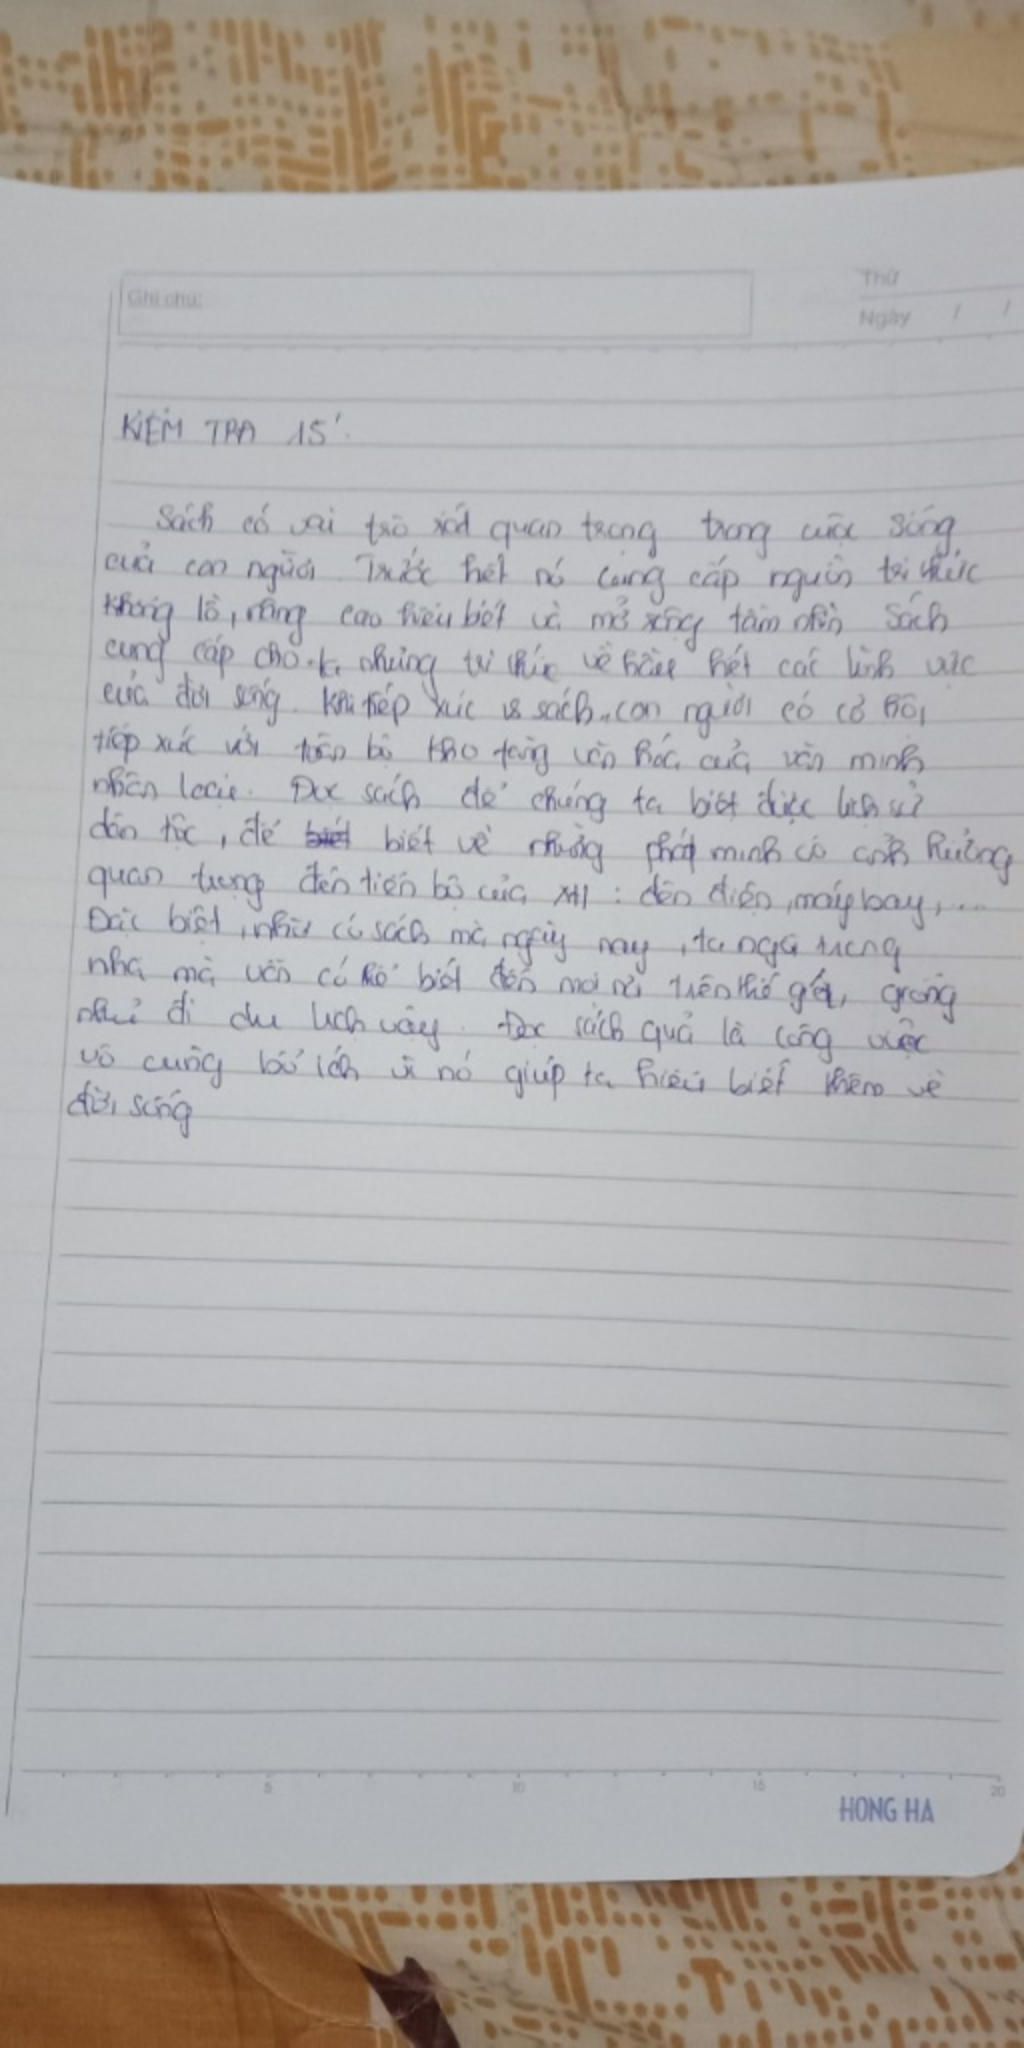 Ghi chú:
Thứ
Ngày / /
KIỂM TRA 15'.
Sách có vai trò rất quan trọng trong cuộc sống
của con người. Trước hết nó cung cấp nguồn tri thức
khổng lồ, nâng cao hiểu biết và mở rộng tầm nhìn. Sách
cung cấp cho những tri thức về hầu hết các lĩnh vực
của đời sống. Khi tiếp xúc vs sách, con người có cơ hội
tiếp xúc với toàn bộ kho tàng văn hóa của văn minh
nhân loại. Đọc sách để chúng ta biết được lịch sử
dân tộc, để biết về những phát minh có ảnh hưởng
quan trọng đến tiến bộ của XH : đèn điện, máy bay, ...
Đặc biệt, nhờ có sách mà ngày nay, ta ngồi trong
nhà mà vẫn có thể biết đến mọi nơi trên thế giới, giống
như đi du lịch vậy. Đọc sách quả là công việc
vô cùng bổ ích vì nó giúp ta hiểu biết thêm về
đời sống
5 10 15 20
HONG HA